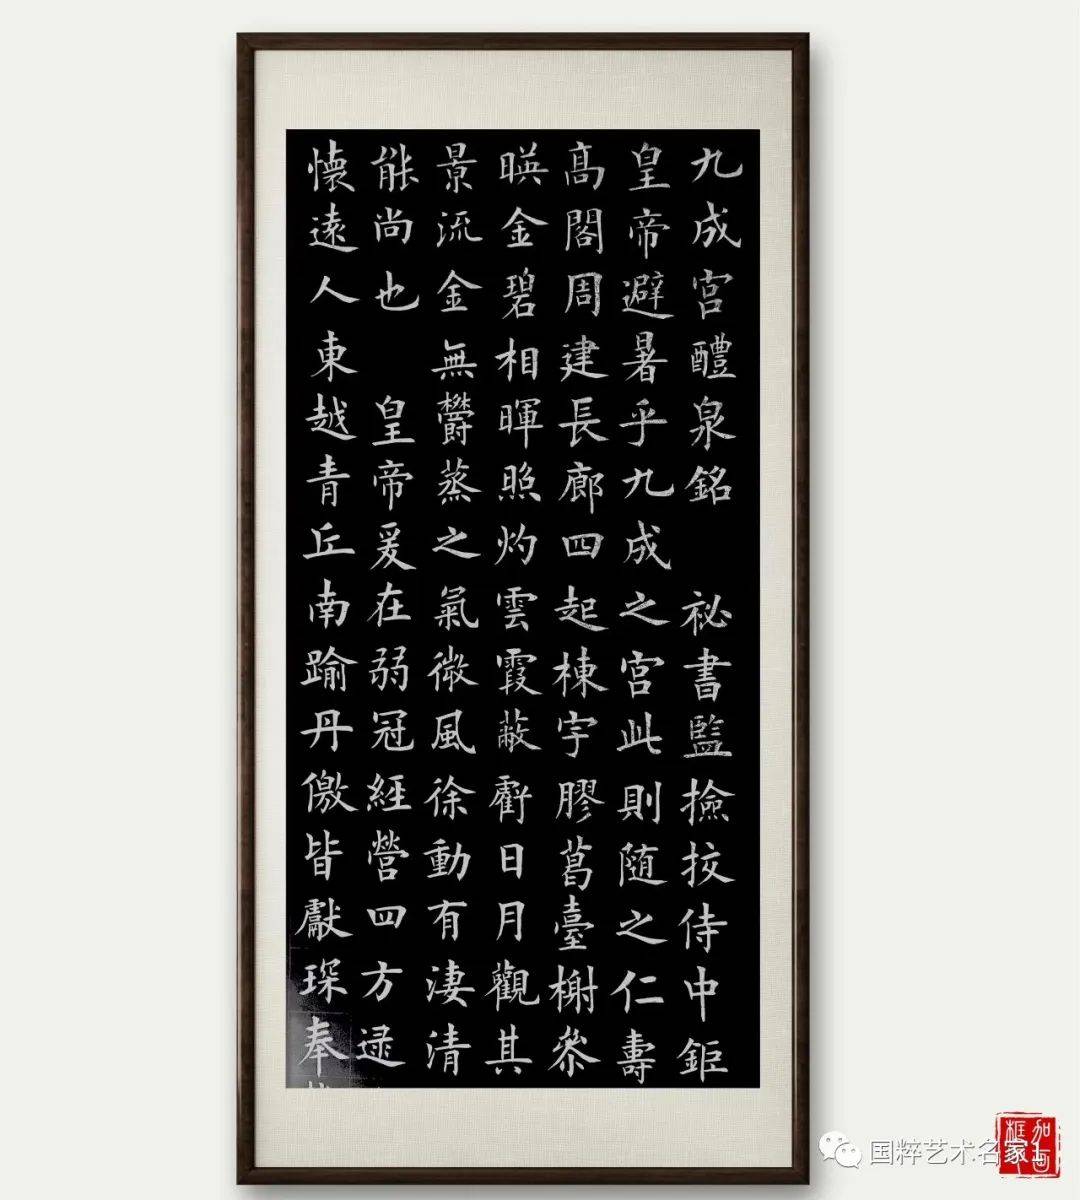 九成宮醴泉銘 祕書監撿挍侍中鉅
皇帝避暑乎九成之宮此則随之仁壽
髙閣周建長廊四起棟宇膠葛臺榭叅
暎金碧相暉照灼雲霞蔽虧日月觀其
景流金無欝蒸之氣微風徐動有淒清
能尚也 皇帝爰在弱冠經營四方逯
懷遠人東越青丘南踰丹儌皆獻琛奉
国粹艺术名家